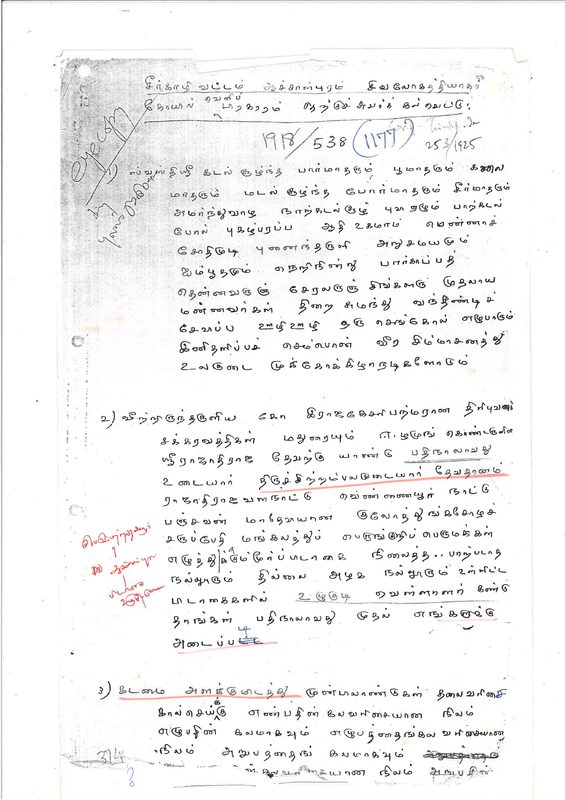 சீர்காழி வட்டம் ஆச்சாள்புரம் சிவலோகத்தியாகர்
கோயில் வெளிப் பிரகாரம் வடக்குச்சுவர்க் கல்வெட்டு:
1918/538 (1177)
25 3/1925
eye copy
ஸ்வஸ்திஸ்ரீ கடல் சூழ்ந்த பார்மாதரும் பூமாதரும் கலை
மாதரும் மடல் சூழ்ந்த போர்மாதரும் சீர்மாதரும்
அமர்ந்துவாழ நாற்கடல்சூழ் புவிஏழும் பாற்கடல்
போல் புகழ்பரப்ப ஆதி உகமாம்
சோதிமுடி புனைந்தருளி அறுசமயமும்
ஐம்பூதமும் நெறிநின்று பார்காப்பத்
தென்னவருஞ் சேரலருஞ் சிங்களரு முதலாய
மன்னவர்கள் திறை சுமந்து வந்தீண்டிச்
சேவிப்ப ஊழிஊழி ஒரு செங்கோல் எழுபாரும்
இனிதளிப்பச் செம்பொன் வீர சிம்மாசனத்து
உலகுடை முக்கோக்கிழானடிகளோடும்
2) வீற்றிருந்தருளிய கோ இராஜகேசரிபந்மரான திரிபுவனச்
சக்கரவத்திகள் மதுரையும் ஈழமுங் கொண்டருளின
ஸ்ரீராஜாதிராஜ தேவற்கு யாண்டு பதிநாலாவது
உடையார் திருச்சிற்றம்பலமுடையார் தேவதானம்
ராஜாதிராஜவளநாட்டு வெண்ணையூர் நாட்டு
பஞ்சவன் மாதேவியான குலோத்துங்கசோழச்
சருப்பேதி மங்கலத்துப் பெருங்குறிப் பெருமக்கள்
எழுத்து நினைத்த..பாற்படாத
நல்லூரும் தில்லை அழக நல்லூரும் உள்ளிட்ட
பிடாகைகளில் உழுகுடி வெள்ளாளர் கண்டு
தாங்கள் பதிநாலாவது முதல் எங்களுக்கு
அடைப்பட
3) கடமை அளக்குமிடத்து முன்பிலாண்டுகள் தலைவரிசை
கால்செய்க்கு எண்பதின் கலவரிசையான நிலம்
எழுபதின் கலமாகவும் எழுபத்தைங்கல வரிசையான
நிலம் அறுபத்தைங் கலமாகவும்
கலவரிசையான நிலம் அறுபதின்
314
3